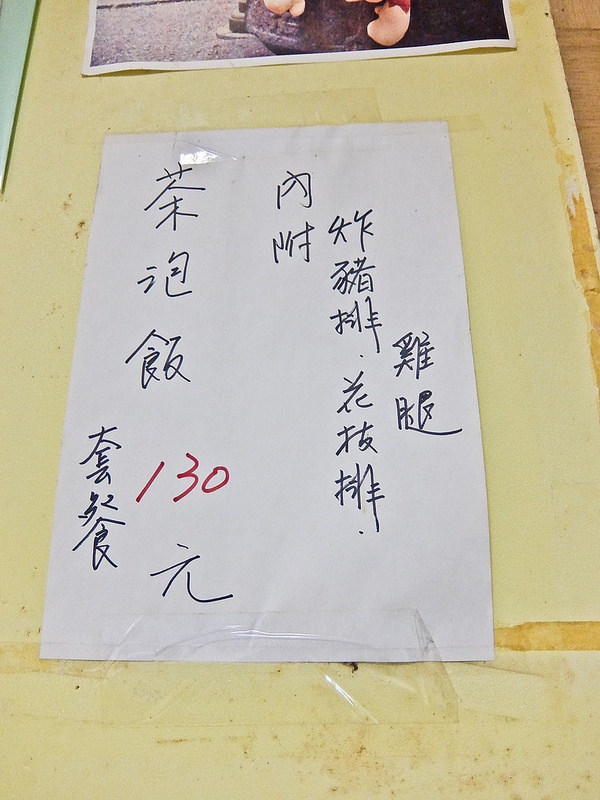 茶泡飯130元
套餐
內附
炸豬排．花枝排．
雞腿